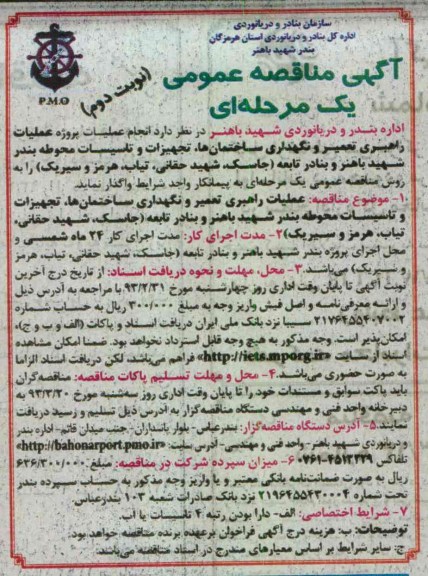 سازمان بنادر و دریانوردی
اداره کل بنادر و دریانوردی استان هرمزگان
بندر شهید باهنر
P.M.O
آگهی مناقصه عمومی
یک مرحله‌ای
(نوبت دوم)
اداره بندر و دریانوردی شهید باهنر در نظر دارد انجام عملیات پروژه عملیات
راهبری تعمیر و نگهداری ساختمان‌ها، تجهیزات و تاسیسات محوطه بندر
شهید باهنر و بنادر تابعه (جاسک، شهید حقانی، تیاب، هرمز و سیریک) را به
روش مناقصه عمومی یک مرحله‌ای به پیمانکار واجد شرایط واگذار نماید.
۱- موضوع مناقصه: عملیات راهبری تعمیر و نگهداری ساختمان‌ها، تجهیزات
و تاسیسات محوطه بندر شهید باهنر و بنادر تابعه (جاسک، شهید حقانی،
تیاب، هرمز و سیریک) ۲- مدت اجرای کار: مدت اجرای کار ۲۴ ماه شمسی و
محل اجرای پروژه بندر شهید باهنر و بنادر تابعه (جاسک، شهید حقانی، تیاب، هرمز
و سیریک) می‌باشند. ۳- محل، مهلت و نحوه دریافت اسناد: از تاریخ درج آخرین
نوبت آگهی تا پایان وقت اداری روز چهارشنبه مورخ ۹۳/۲/۳۱ با مراجعه به آدرس ذیل
و ارائه معرفی‌نامه و اصل فیش واریز وجه به مبلغ ۳۰۰/۰۰۰ ریال به حساب شماره
۲۱۷۶۴۵۵۴۰۷۰۰۲ سیبا نزد بانک ملی ایران دریافت اسناد و پاکات (الف و ب و ج)،
امکان‌پذیر است. وجه مذکور به هیچ وجه قابل استرداد نخواهد بود. ضمنا امکان مشاهده
اسناد از سایت «http://iets.mporg.ir» فراهم می‌باشد، لکن دریافت اسناد الزاما
به صورت حضوری می‌باشد. ۴- محل و مهلت تسلیم پاکات مناقصه: مناقصه‌گران
باید پاکت سوابق و مستندات خود را تا پایان وقت اداری روز سه‌شنبه مورخ ۹۳/۳/۲۰ به
دبیرخانه واحد فنی و مهندسی دستگاه مناقصه‌گزار به آدرس ذیل تسلیم و رسید دریافت
نمایند. ۵- آدرس دستگاه مناقصه‌گزار: بندرعباس- بلوار پاسداران- جنب میدان قائم- اداره بندر
و دریانوردی شهید باهنر- واحد فنی و مهندسی- آدرس سایت: «http://bahonarport.pmo.ir»
تلفاکس ۴۵۱۲۳۲۹-۰۷۶۱ ۶- میزان سپرده شرکت در مناقصه: مبلغ ۶۳۶/۳۰۰/۰۰۰
ریال به صورت ضمانت‌نامه بانکی معتبر و یا واریز وجه مذکور به حساب سپرده بندر
تحت شماره ۲۱۹۶۴۵۵۴۳۰۰۰۴ نزد بانک صادرات شعبه ۱۰۳ بندرعباس.
۷- شرایط اختصاصی: الف- دارا بودن رتبه ۴ تاسیسات یا آب.
توضیحات: ب: هزینه درج آگهی فراخوان برعهده برنده مناقصه خواهد بود.
ج: سایر شرایط بر اساس معیارهای مندرج در اسناد مناقصه می‌باشد.